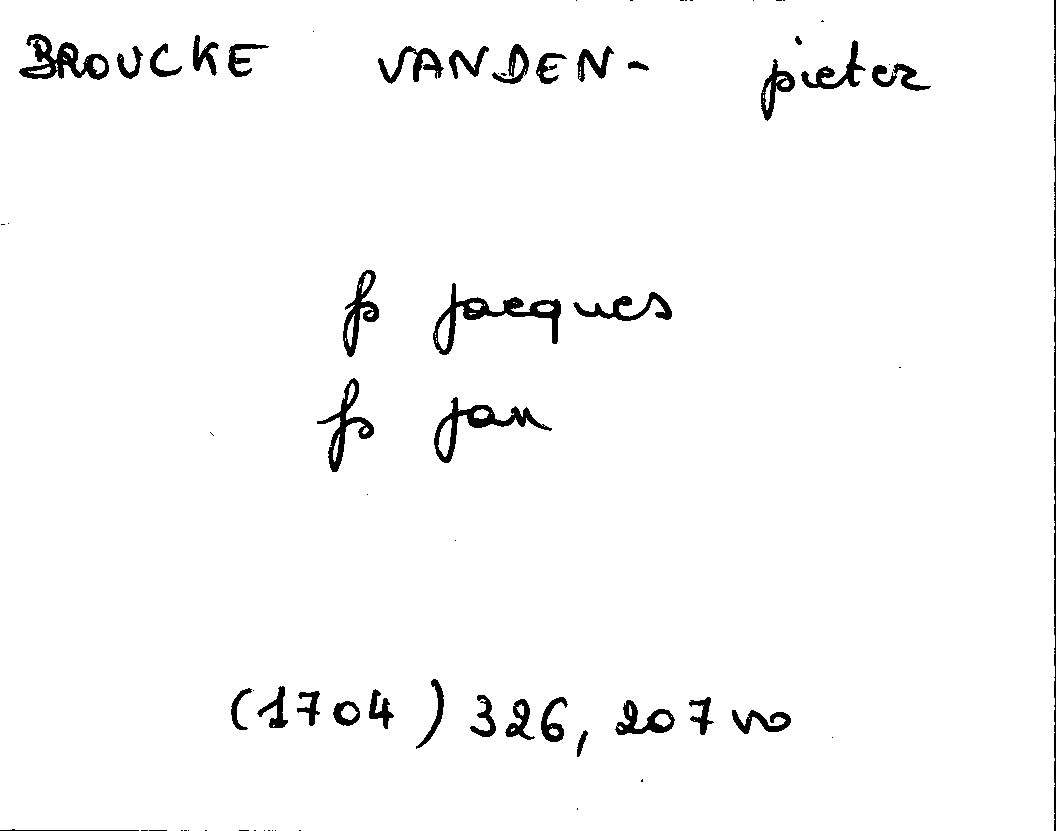 BROUCKE VANDEN- pieter
fs jacques
fs jan
(1704) 326, 207 vo